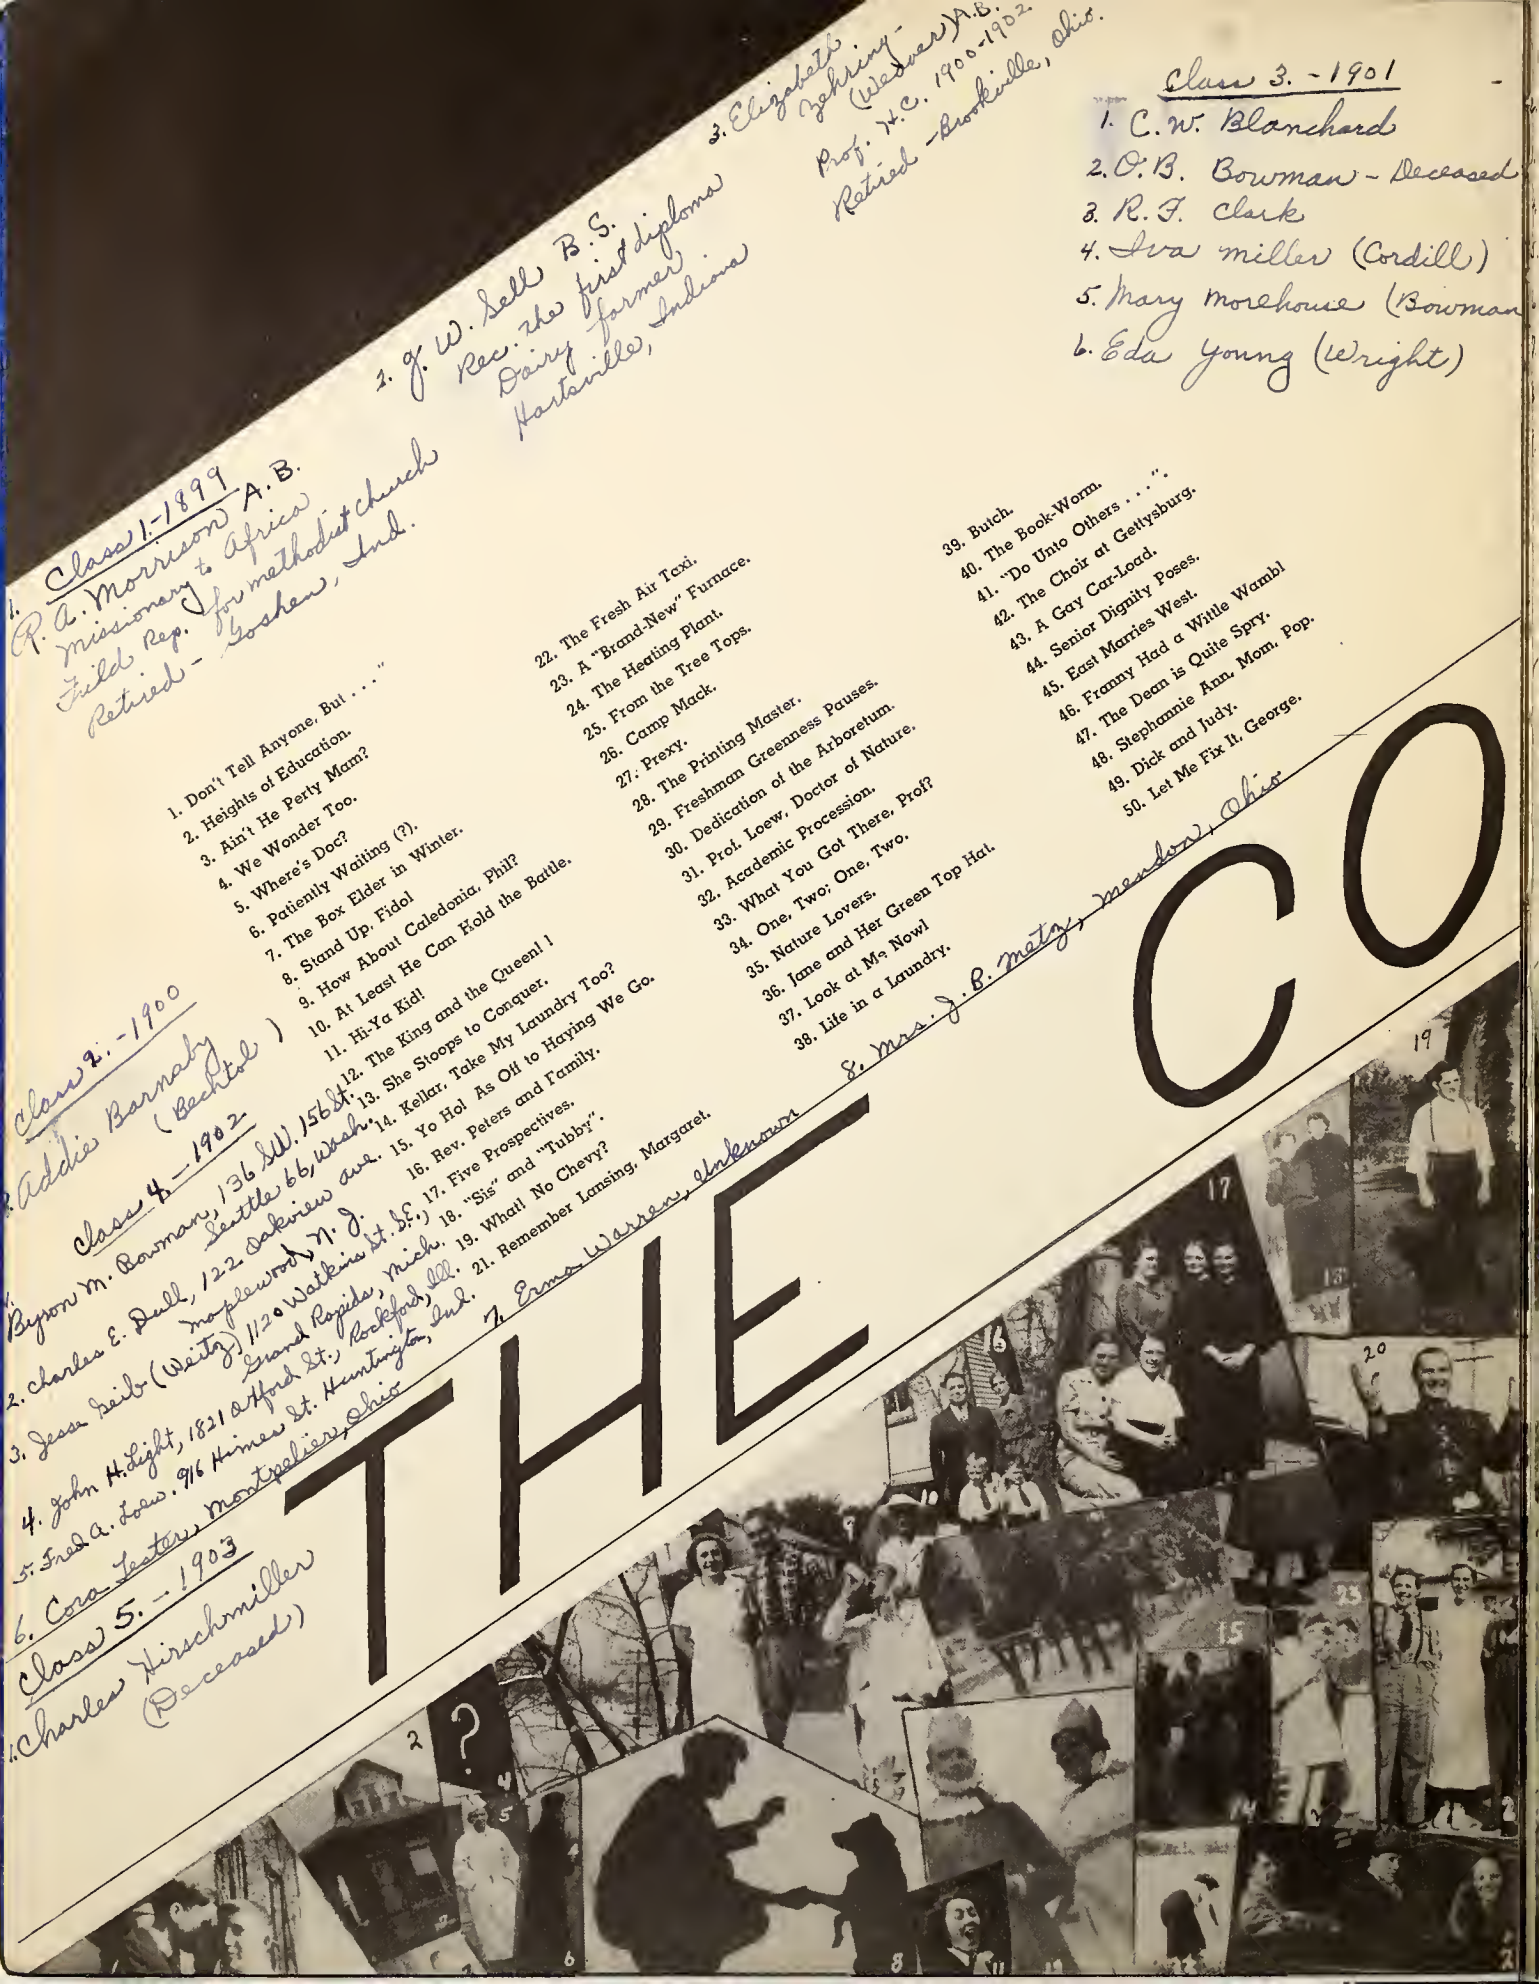 Class 1.-1899
1. R. A. Morrison A.B.
Missionary to Africa
Feild Rep. for methodist church
Retired - Goshen, Ind.
2. J. W. Sell B.S.
Rec. the first diploma
Dairy farmer
Hartsville, Indiana
3. Elizabeth
Zehring-
(Weaver) A.B.
Prof. H.C. 1900-1902
Retired - Brookville, Ohio.
Class 3. - 1901
1. C.W. Blanchard
2. O.B. Bowman - Deceased
3. R.F. Clark
4. Iva Miller (Cordill)
5. Mary Morehouse (Bowman
6. Eda Young (Wright)
Class 2. - 1900
1. Addie Barnaby
(Bechtol)
Class 4 - 1902
1. Byron M. Bowman, 136 SW. 156 St.
Seattle 66, Wash.
2. Charles E. Dull, 122 Oakview ave.
Maplewood, N. J.
3. Jesse Geib (Weitz) 1120 Watkins St. S.E.,
Grand Rapids, Mich.
4. John H. Light, 1821 Oxford St., Rockford, Ill.
5. Fred A. Loew. 916 Himes St. Huntington, Ind.
6. Cora Lester, Montpelier, Ohio
7. Erma Warren, Unknown
8. Mrs. J. B. Metz, Mendon, Ohio
Class 5. - 1903
1. Charles Hirschmiller
(Deceased)
1. Don't Tell Anyone, But . . ."
2. Heights of Education.
3. Ain't He Perty Mam?
4. We Wonder Too.
5. Where's Doc?
6. Patiently Waiting (?).
7. The Box Elder in Winter.
8. Stand Up, Fido!
9. How About Caledonia, Phil?
10. At Least He Can Hold the Battle.
11. Hi-Ya Kid!
12. The King and the Queen! !
13. She Stoops to Conquer.
14. Kellar, Take My Laundry Too?
15. Yo Ho! As Off to Haying We Go.
16. Rev. Peters and Family.
17. Five Prospectives.
18. "Sis" and "Tubby".
19. What! No Chevy?
21. Remember Lansing, Margaret.
22. The Fresh Air Taxi.
23. A "Brand-New" Furnace.
24. The Heating Plant.
25. From the Tree Tops.
26. Camp Mack.
27. Prexy.
28. The Printing Master.
29. Freshman Greenness Pauses.
30. Dedication of the Arboretum.
31. Prof. Loew, Doctor of Nature.
32. Academic Procession.
33. What You Got There, Prof?
34. One, Two; One, Two.
35. Nature Lovers.
36. Jane and Her Green Top Hat.
37. Look at Me Now!
38. Life in a Laundry.
39. Butch.
40. The Book-Worm.
41. "Do Unto Others . . .".
42. The Choir at Gettysburg.
43. A Gay Car-Load.
44. Senior Dignity Poses.
45. East Marries West.
46. Franny Had a Wittle Wamb!
47. The Dean is Quite Spry.
48. Stephannie Ann, Mom, Pop.
49. Dick and Judy.
50. Let Me Fix It, George.
THE CO
19
17
18
16
20
23
15
2
?
4
5
6
8
11